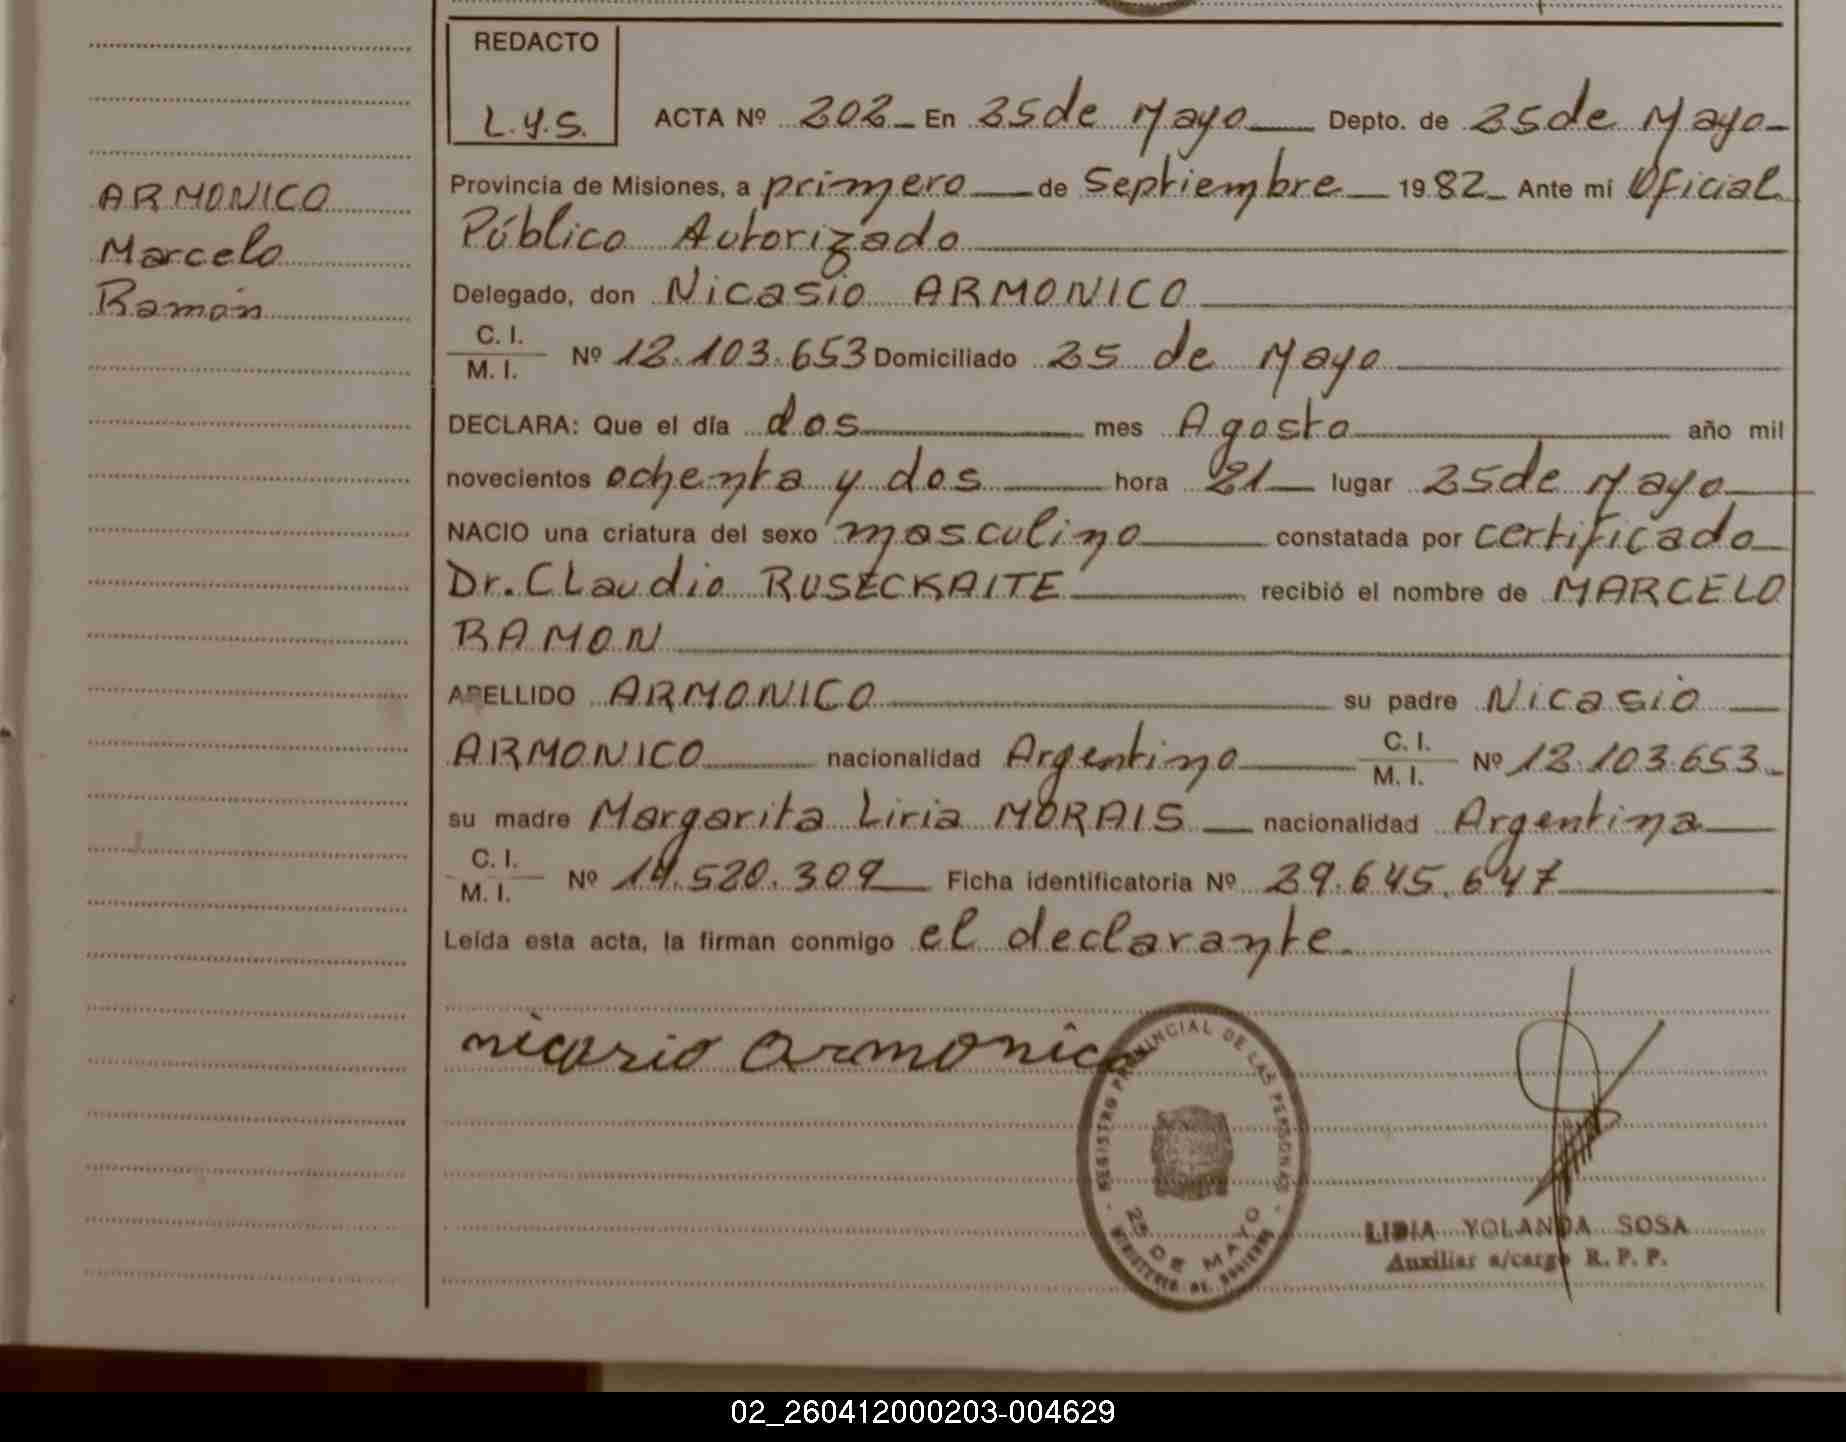 REDACTO
L.Y.S.
ACTA Nº 202 En 25 de Mayo Depto. de 25 de Mayo
Provincia de Misiones, a primero de Septiembre 1982 Ante mí Oficial
Público Autorizado
Delegado, don Nicasio ARMONICO
C. I.
M. I. Nº 12.103.653 Domiciliado 25 de Mayo
DECLARA: Que el día dos mes Agosto año mil
novecientos ochenta y dos hora 21 lugar 25 de Mayo
NACIO una criatura del sexo masculino constatada por certificado
Dr. Claudio RUSECKAITE recibió el nombre de MARCELO
RAMON
APELLIDO ARMONICO su padre Nicasio
ARMONICO nacionalidad Argentino C. I. M. I. Nº 12.103.653
su madre Margarita Liria MORAIS nacionalidad Argentina
C. I.
M. I. Nº 14.520.309 Ficha identificatoria Nº 29.645.647
Leída esta acta, la firman conmigo el declarante.
ARMONICO
Marcelo
Ramón
nicasio armonico
REGISTRO PROVINCIAL DE LAS PERSONAS
25 DE MAYO
MINISTERIO DE GOBIERNO
LIDIA YOLANDA SOSA
Auxiliar a/cargo R. P. P.
02_260412000203-004629